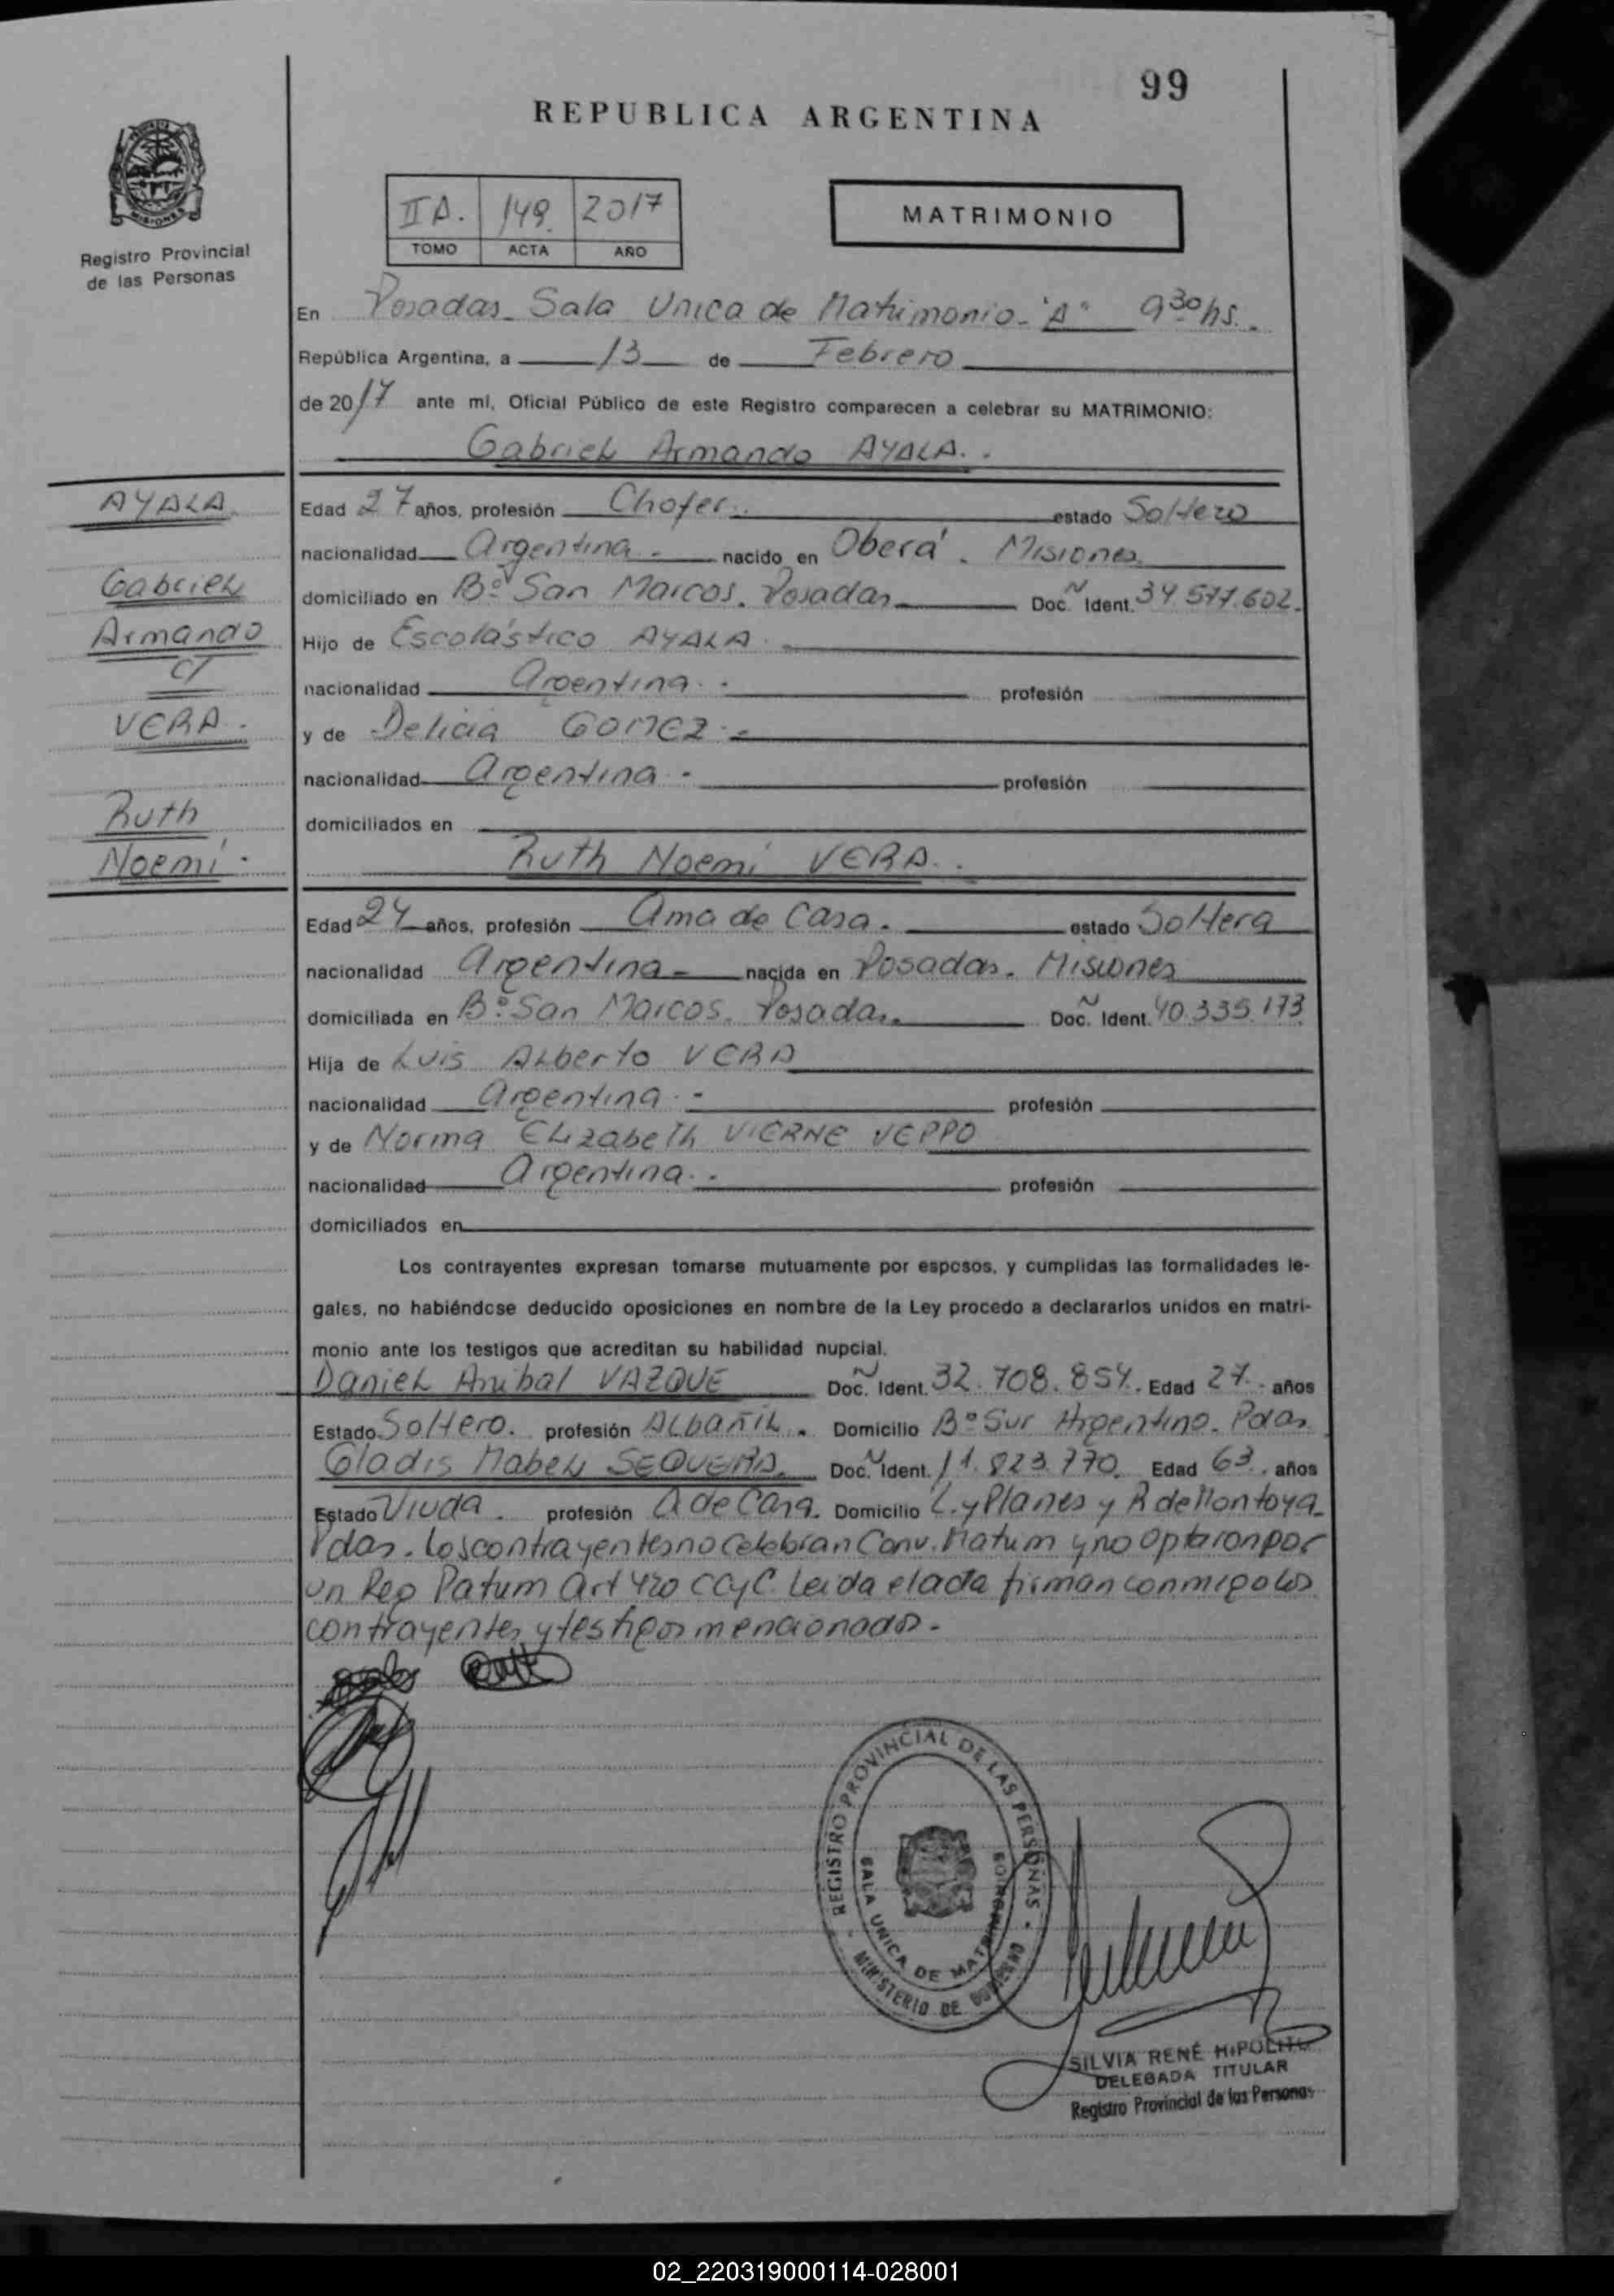 99
REPUBLICA ARGENTINA
IIA. 149. 2017
TOMO ACTA AÑO
MATRIMONIO
MISIONES
Registro Provincial
de las Personas
En Posadas - Sala Unica de Matrimonio - "A" 9 30 hs.
República Argentina, a 13 de Febrero
de 2017 ante mí, Oficial Público de este Registro comparecen a celebrar su MATRIMONIO:
Gabriel Armando AYALA.
AYALA
Gabriel
Armando
c/
VERA.
Ruth
Noemí.
Edad 27 años, profesión Chofer. estado Soltero
nacionalidad Argentina - nacido en Oberá. Misiones
domiciliado en Bº San Marcos. Posadas Doc. Ident. 34.577.602.
Hijo de Escolástico AYALA
nacionalidad Argentina. profesión
y de Delicia GOMEZ.
nacionalidad Argentina. profesión
domiciliados en
Ruth Noemí VERA.
Edad 24 años, profesión Ama de Casa. estado Soltera
nacionalidad Argentina - nacida en Posadas. Misiones
domiciliada en Bº San Marcos. Posadas Doc. Ident. 40.335.173
Hija de Luis Alberto VERA
nacionalidad Argentina. - profesión
y de Norma Elizabeth VIERNE VEPPO
nacionalidad Argentina. profesión
domiciliados en
Los contrayentes expresan tomarse mutuamente por esposos, y cumplidas las formalidades le-
gales, no habiéndose deducido oposiciones en nombre de la Ley procedo a declararlos unidos en matri-
monio ante los testigos que acreditan su habilidad nupcial.
Daniel Anibal VAZQUE Doc. Ident. 32.708.854. Edad 27. años
Estado Soltero. profesión Albañil. Domicilio Bº Sur Argentino. Pdas
Gladis Mabel SEQUEIRA. Doc. Ident. 11.823.770. Edad 63. años
Estado Viuda. profesión A de Casa. Domicilio L. y Planes y R de Montoya
Pdas. Los contrayentes no celebran Conv. Matrim y no optaron por
un Reg Patrim art 420 CCyC. Leida el acta firman conmigo los
contrayentes y testigos mencionados.-
REGISTRO PROVINCIAL DE LAS PERSONAS
SALA UNICA DE MATRIMONIOS
MINISTERIO DE GOBIERNO
SILVIA RENÉ HIPOLITO
DELEGADA TITULAR
Registro Provincial de las Personas
02_220319000114-028001